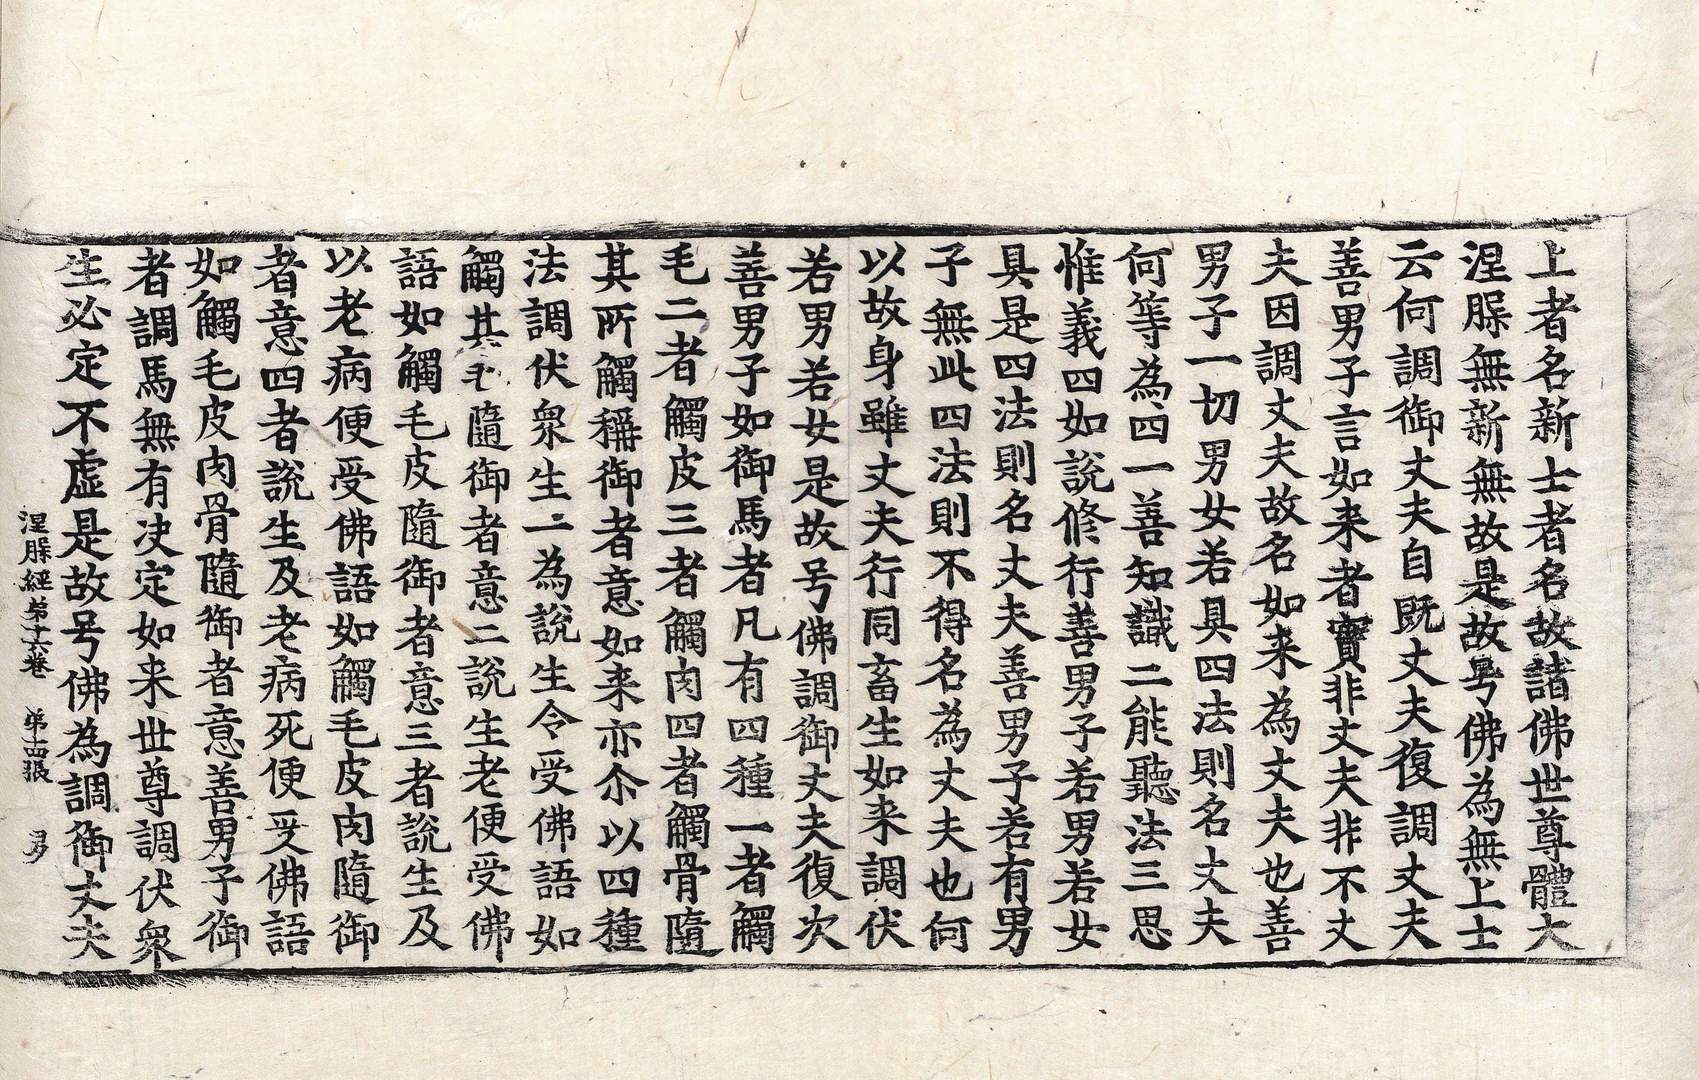 上者名新士者名故諸佛世尊體大
涅槃無新無故是故号佛為無上士
云何調御丈夫自既丈夫復調丈夫
善男子言如来者實非丈夫非不丈
夫因調丈夫故名如来為丈夫也善
男子一切男女若具四法則名丈夫
何等為四一善知識二能聽法三思
惟義四如說修行善男子若男若女
具是四法則名丈夫善男子若有男
子無此四法則不得名為丈夫也何
以故身雖丈夫行同畜生如来調伏
若男若女是故号佛調御丈夫復次
善男子如御馬者凡有四種一者觸
毛二者觸皮三者觸肉四者觸骨隨
其所觸稱御者意如来亦尒以四種
法調伏衆生一為說生令受佛語如
觸其毛隨御者意二說生老便受佛
語如觸毛皮隨御者意三者說生及
以老病便受佛語如觸毛皮肉隨御
者意四者說生及老病死便受佛語
如觸毛皮肉骨隨御者意善男子御
者調馬無有决定如来世尊調伏衆
生必定不虛是故号佛為調御丈夫
涅槃經第十六卷 第十四張